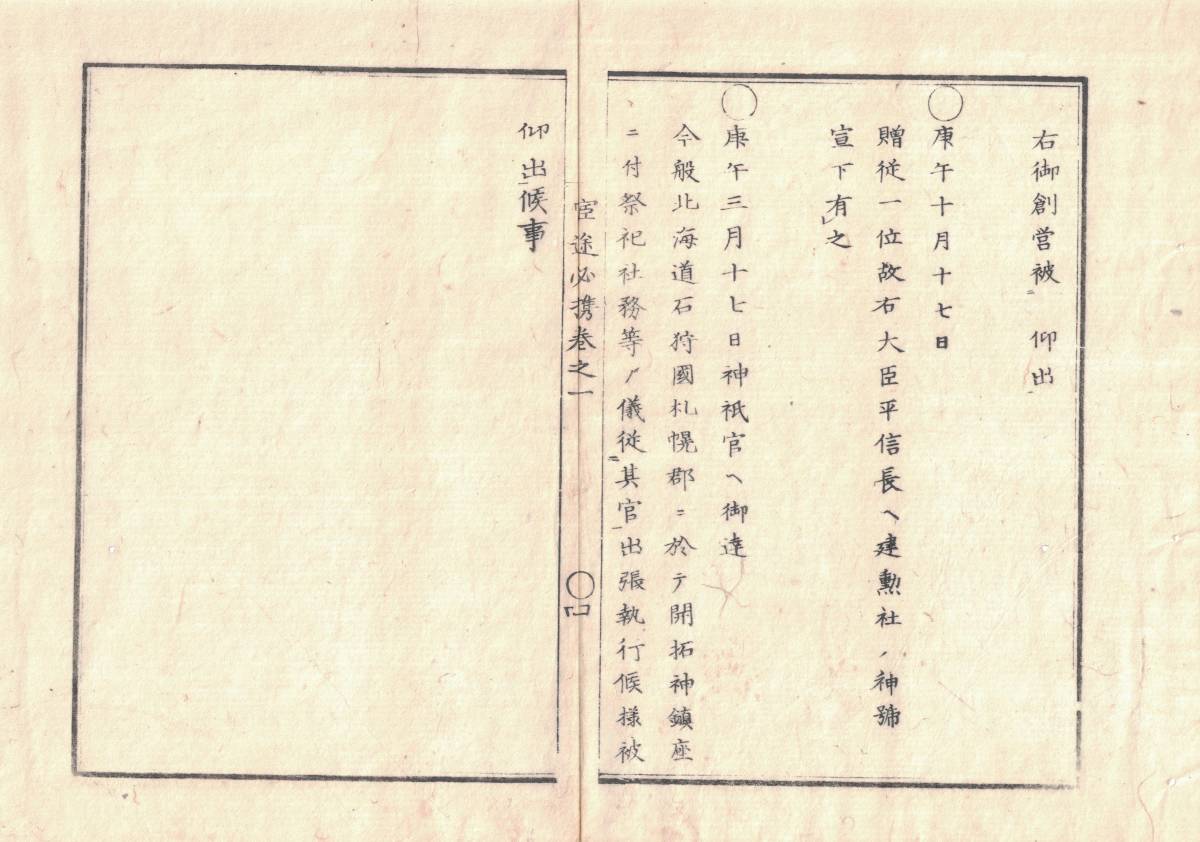 右御創営被　仰出
○庚午十月十七日
贈従一位故右大臣平信長ヘ建勲社ノ神號
宣下有之
○庚午三月十七日神祇官ヘ御達
今般北海道石狩國札幌郡ニ於テ開拓神鎮座
ニ付祭祀社務等ノ儀従其官出張執行候様被
宦途必携巻之一
○四
仰出候事